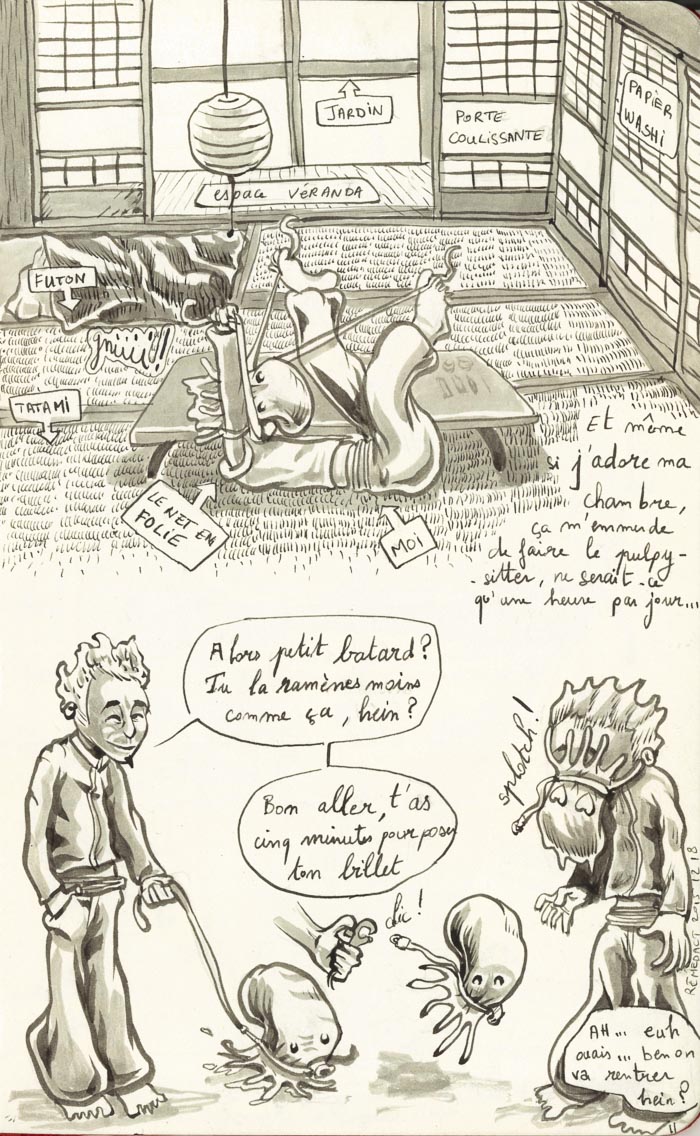 JARDIN
PORTE
COULISSANTE
PAPIER
WASHI
espace VÉRANDA
FUTON
gniii!!
TATAMI
LE NET EN
FOLIE
MOI
Et même
si j'adore ma
chambre,
ça m'emmerde
de faire le pulpy-
-sitter, ne serait-ce
qu'une heure par jour...
Alors petit batard?
Tu la ramènes moins
comme ça, hein?
Bon aller, t'as
cinq minutes pour poser
ton billet
clic!
splotch!
AH... euh
ouais... ben on
va rentrer
hein?
RÉMEDACT 2013 12 18
11